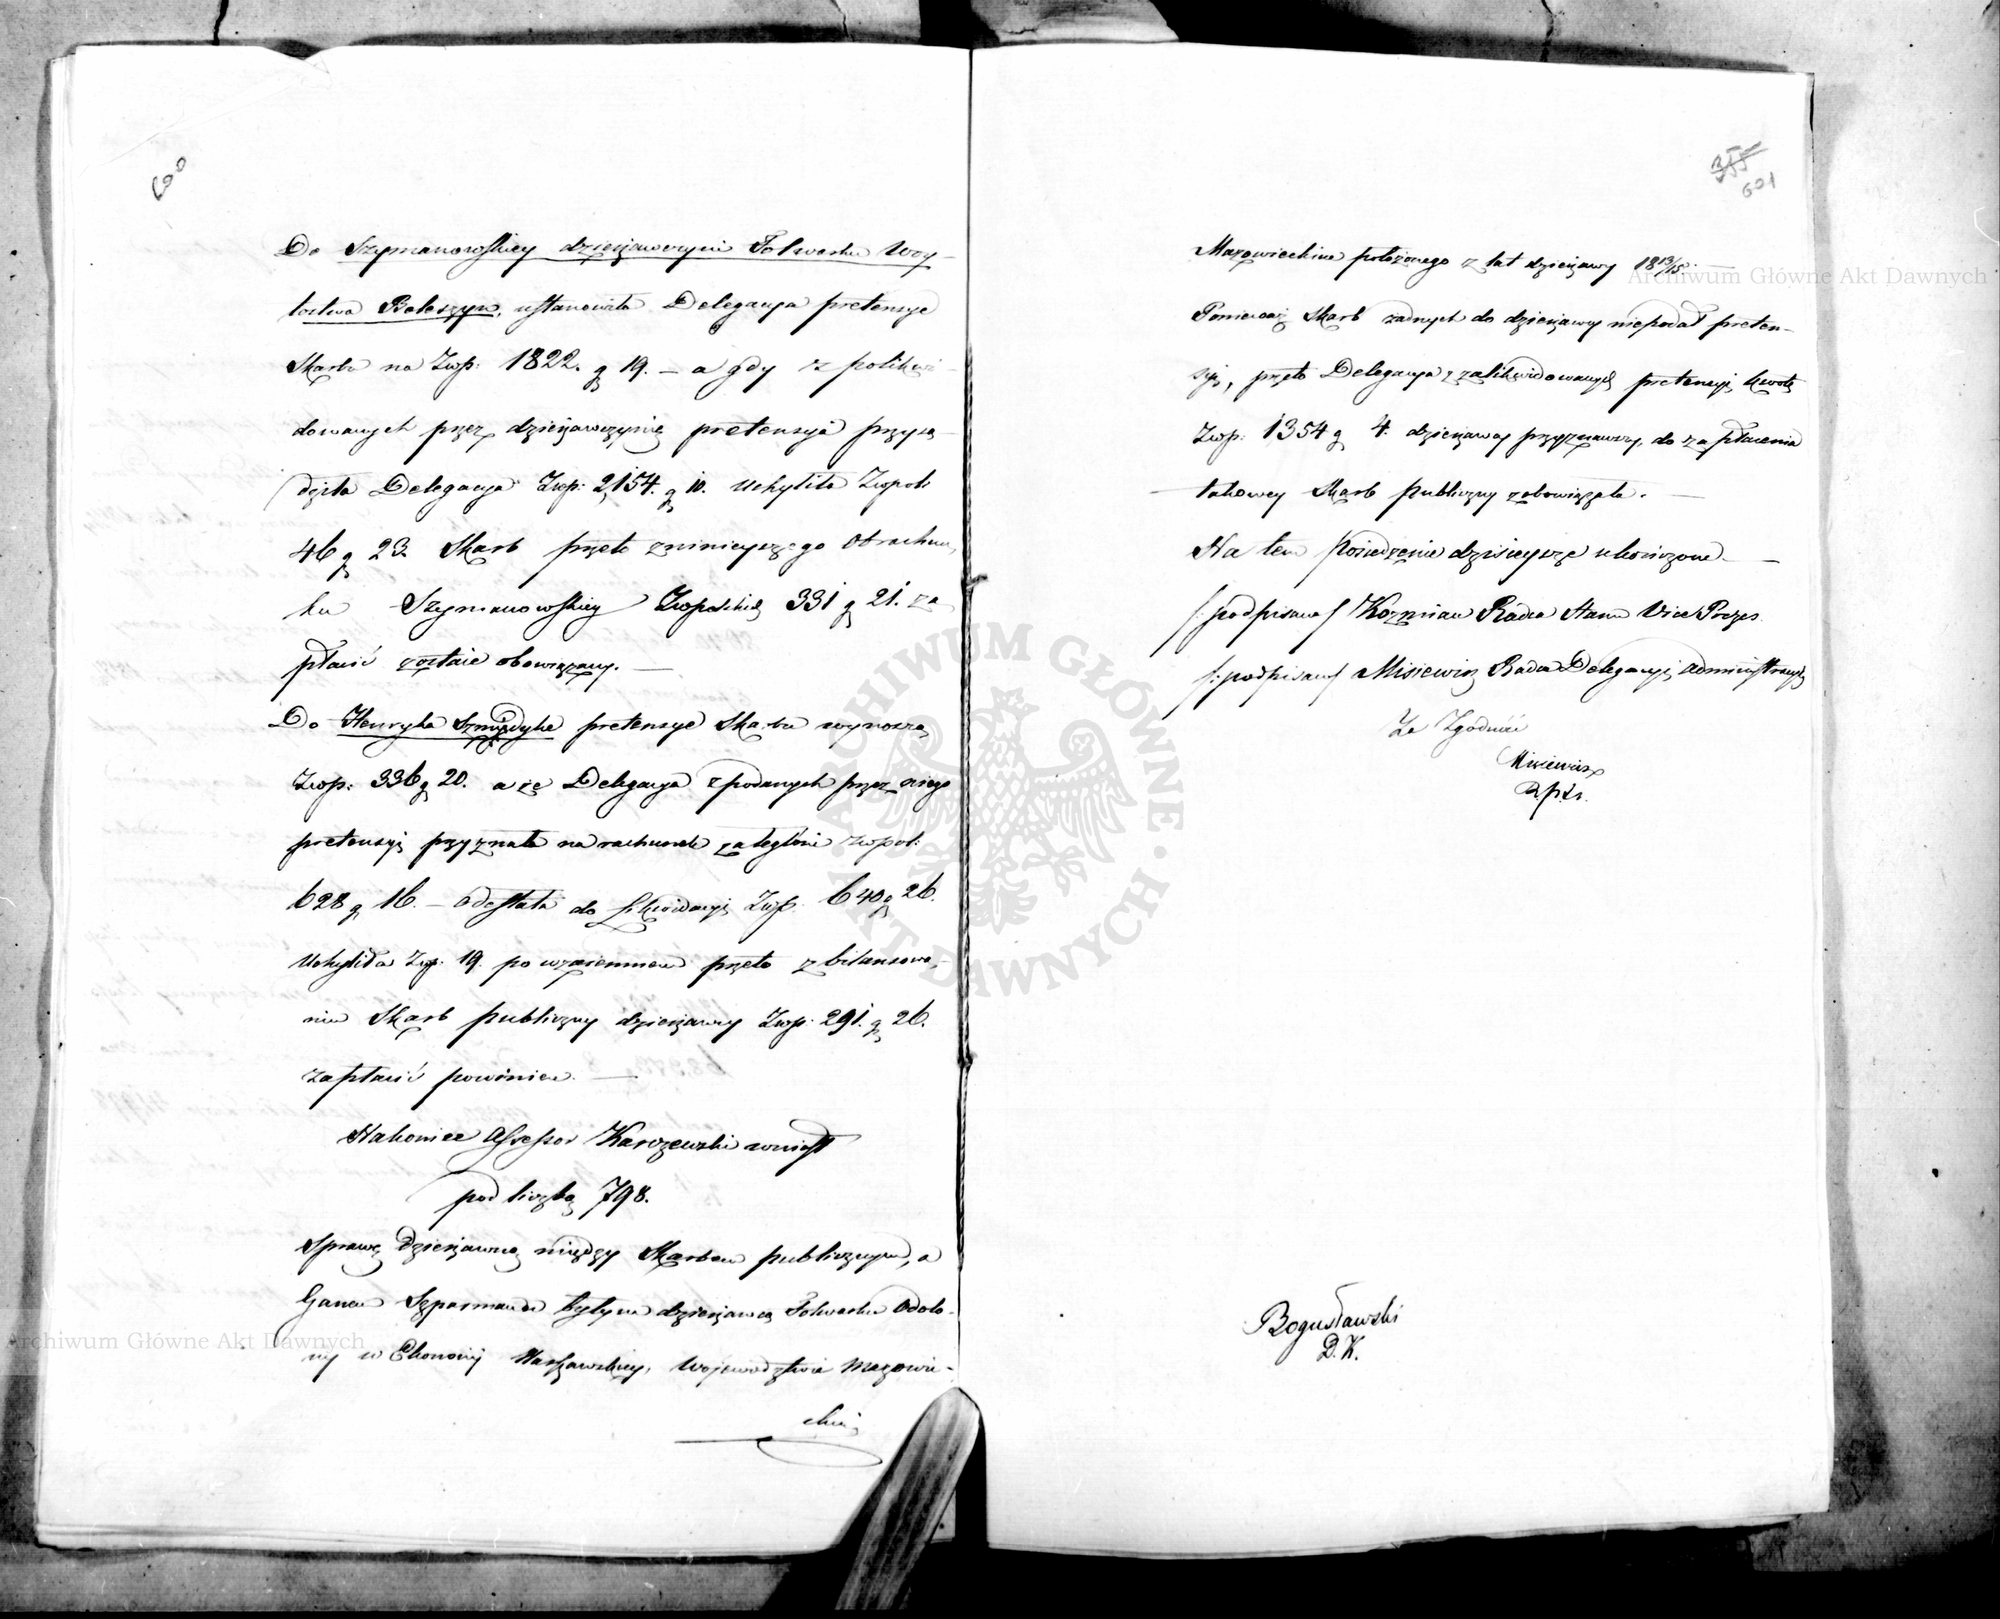 600
Do Szymanowskiey dzierżawczyni Folwarku Woy-
tostwa Beleszyn, ustanowiła Delegacya pretensye
Skarbu na Złwp: 1822. g 19. – a gdy z polikwi-
dowanych przez dzierżawczynię pretensyi przysą-
dziła Delegacya Złwp: 2,154. g 10. Uchyliła Złwpol:
46 g 23 Skarb przeto z ninieyszego Obrachun-
ku Szymanowskiey Złwpolskich 331 g 21. za
płacić zostaie obowiązany. —
Do Henryka pretensye Skarbu wynoszą
Złwp: 336 g 20. a że Delegacya z podanych przez niego
pretensyi przyznała na rachunek zaległości Złwpol:
628 g 16. – Odesłała do Likwidacyi Złwp. 640 g 26.
Uchyliła Złwp: 19. po wzaiemnem przeto zbilansowa-
niu Skarb publiczny dzierżawcy Złwp: 291. g 26.
zapłacić powinien. —
Nakoniec Assessor Karczewski wniosł
pod liczbą 798.
Sprawę dzierżawną między Skarbem publicznym, a
Szparmanem byłym dzierżawcą Folwarku Odola-
ny w Ekonomij Warszawskiey, Woiewództwie Mazowie-
ckim
355
601
Mazowieckim położonego z lat dzierżawy 1813/15. —
Ponieważ Skarb żadnych do dzierżawcy niepodał preten-
syi, przeto Delegacya z zalikwidowanych pretensyi kwotę
Złwp: 1354 g 4. dzierżawcy przyznawszy, do zapłacenia
takowey Skarb Publiczny zobowiązała. —
Na tem Posiedzenie dzisieysze ukończone. —
/: podpisano / Kozmian Radca Stanu Vice Prezes
/: podpisano / Misiewicz Radca Delegacyi Administracyi
Za Zgodność
Misiewicz
Bogusławski
D.K.
Archiwum Główne Akt Dawnych
Archiwum Główne Akt Dawnych
ARCHIWUM GŁÓWNE · AKT DAWNYCH ·